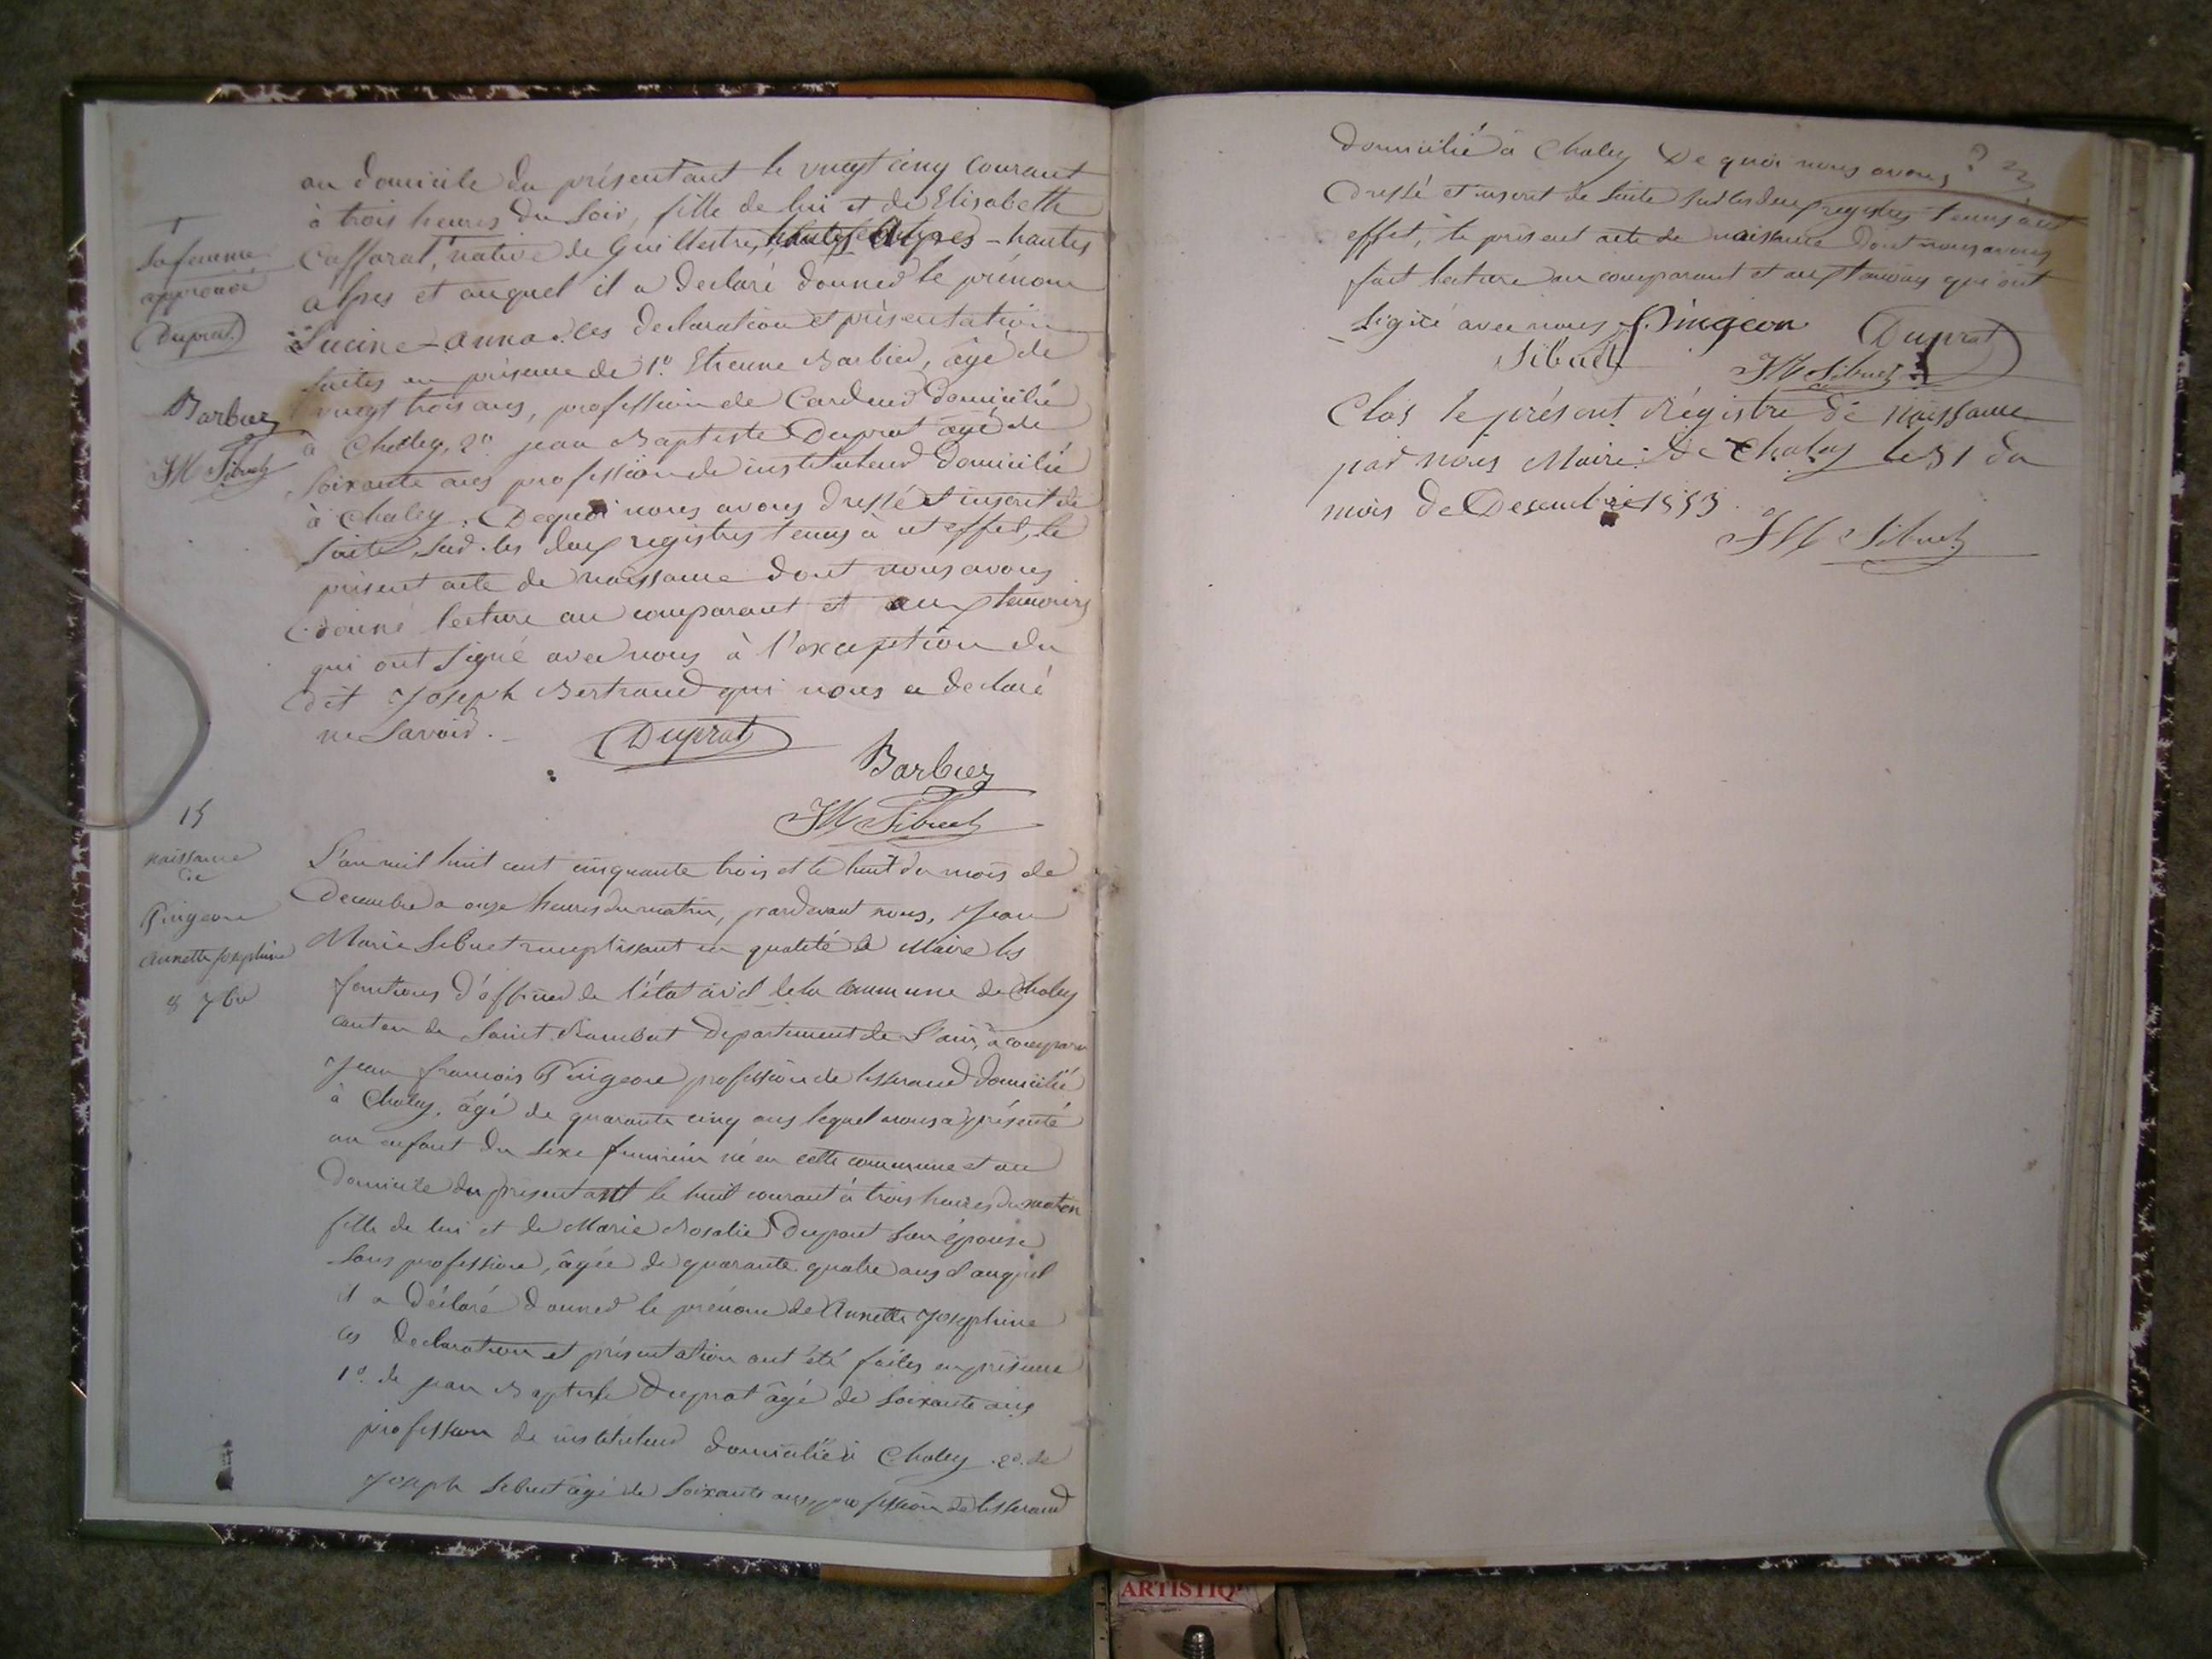 au domicile du présentant le vingt cinq courant
à trois heures du soir, fille de lui et de Elisabeth
Caffarat, native de Guillestre, hautes Alpes - hautes
alpes et auquel il a declaré donner le prénom
Lucine - anna. Ces declaration et présentation
faites en présence de 1º Etienne Barbier, âgé de
vingt trois ans, profession de Cardeur domicilié
à Chaley, 2º jean Baptiste Duprat âgé de
soixante ans profession de instituteur domicilié
à Chaley. De quoi nous avons dressé et inscrit de
suite, sur les deux registres tenus à cet effet, le
présent acte de naissance dont nous avons
donné lecture au comparant et aux temoins
qui ont signé avec nous à l'exception du
dit Joseph Bertrand qui nous a declaré
ne savoir.
Duprat
Barbier
JM Sibuet
sa femme
approuvé
Duprat
Barbier
JM Sibuet
15
naissance
de
Pingeon
Annette Josephine
8 Xbre
L'an mil huit cent cinquante trois et le huit du mois de
Decembre a onze heures du matin, pardevant nous, Jean
Marie Sibuet remplissant en qualité de Maire les
fonctions d'officier de l'état civil de la commune de Chaley
canton de Saint Rambert Departement de l'ain, a comparu
Jean françois Pingeon profession de tisserand domicilié
à Chaley, âgé de quarante cinq ans lequel nous a présenté
un enfant du sexe feminin né en cette commune et au
domicile du présentant le huit courant à trois heures du matin
fille de lui et de Marie Rosalie Dupont son épouse
sans profession, âgée de quarante quatre ans et auquel
il a déclaré donner le prénom de Annette Josephine
ces declaration et présentation ont été faites en présence
1º de jean Baptiste Duprat âgé de soixante ans
profession de instituteur domicilié à Chaley 2º de
Joseph Sibuet âgé de soixante ans, profession de tisserand
domicilié à Chaley De quoi nous avons
dressé et inscrit de suite sur les deux registres tenus à cet
effet, le présent acte de naissance dont nous avons
fait lecture au comparant et aux temoins qui ont
signé avec nous Pingeon Duprat
Sibuet JM Sibuet
Clos le présent Régistre de naissance
par nous Maire de Chaley le 31 du
mois de Decembre 1853
JM Sibuet
ARTISTIQ